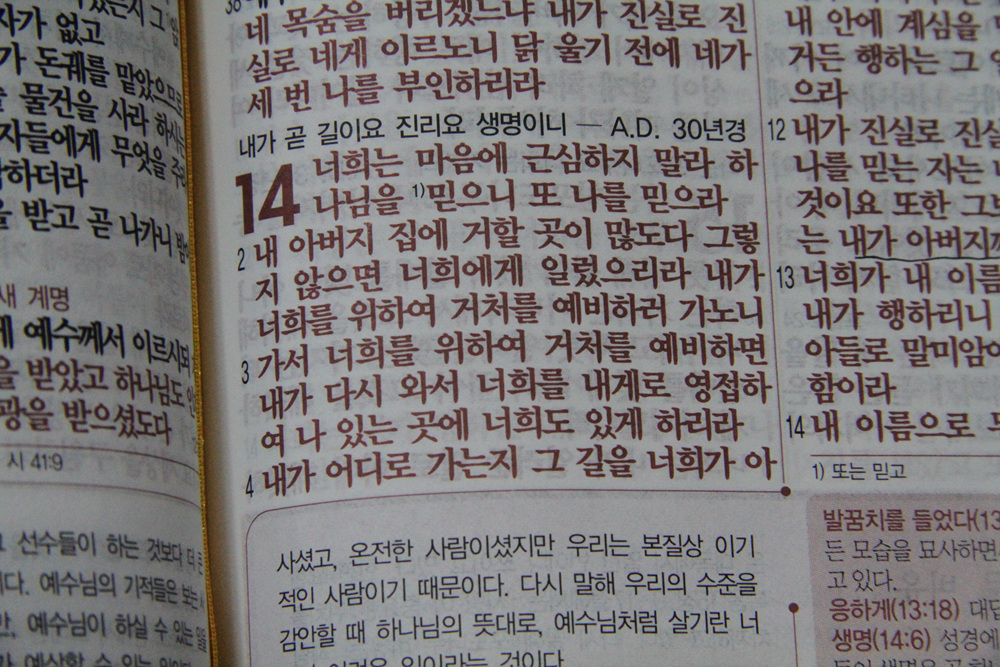 자가 없고
가 돈궤를 맡았으므로
물건을 사라 하시는
자들에게 무엇을 주
하더라
을 받고 곧 나가니 밤
새 계명
예수께서 이르시되
을 받았고 하나님도
광을 받으셨도다
시 41:9
선수들이 하는 것보다 더
이다. 예수님의 기적들은
예수님이 하실 수 있는 일을
네 목숨을 버리겠느냐 내가 진실로 진
실로 네게 이르노니 닭 울기 전에 네가
세 번 나를 부인하리라
내가 곧 길이요 진리요 생명이니 — A.D. 30년경
14 너희는 마음에 근심하지 말라 하
나님을 1)믿으니 또 나를 믿으라
2 내 아버지 집에 거할 곳이 많도다 그렇
지 않으면 너희에게 일렀으리라 내가
너희를 위하여 거처를 예비하러 가노니
3 가서 너희를 위하여 거처를 예비하면
내가 다시 와서 너희를 내게로 영접하
여 나 있는 곳에 너희도 있게 하리라
4 내가 어디로 가는지 그 길을 너희가 아
사셨고, 온전한 사람이셨지만 우리는 본질상 이기
적인 사람이기 때문이다. 다시 말해 우리의 수준을
감안할 때 하나님의 뜻대로, 예수님처럼 살기란 너
일이라는 것이다.
내 안에 계심을
거든 행하는 그
으라
12 내가 진실로 진실
나를 믿는 자는
것이요 또한 그보
는 내가 아버지께
13 너희가 내 이름
내가 행하리니
아들로 말미암아
함이라
14 내 이름으로
1) 또는 믿고
발꿈치를 들었다(13
든 모습을 묘사하면
고 있다.
응하게(13:18) 대답
생명(14:6) 성경에